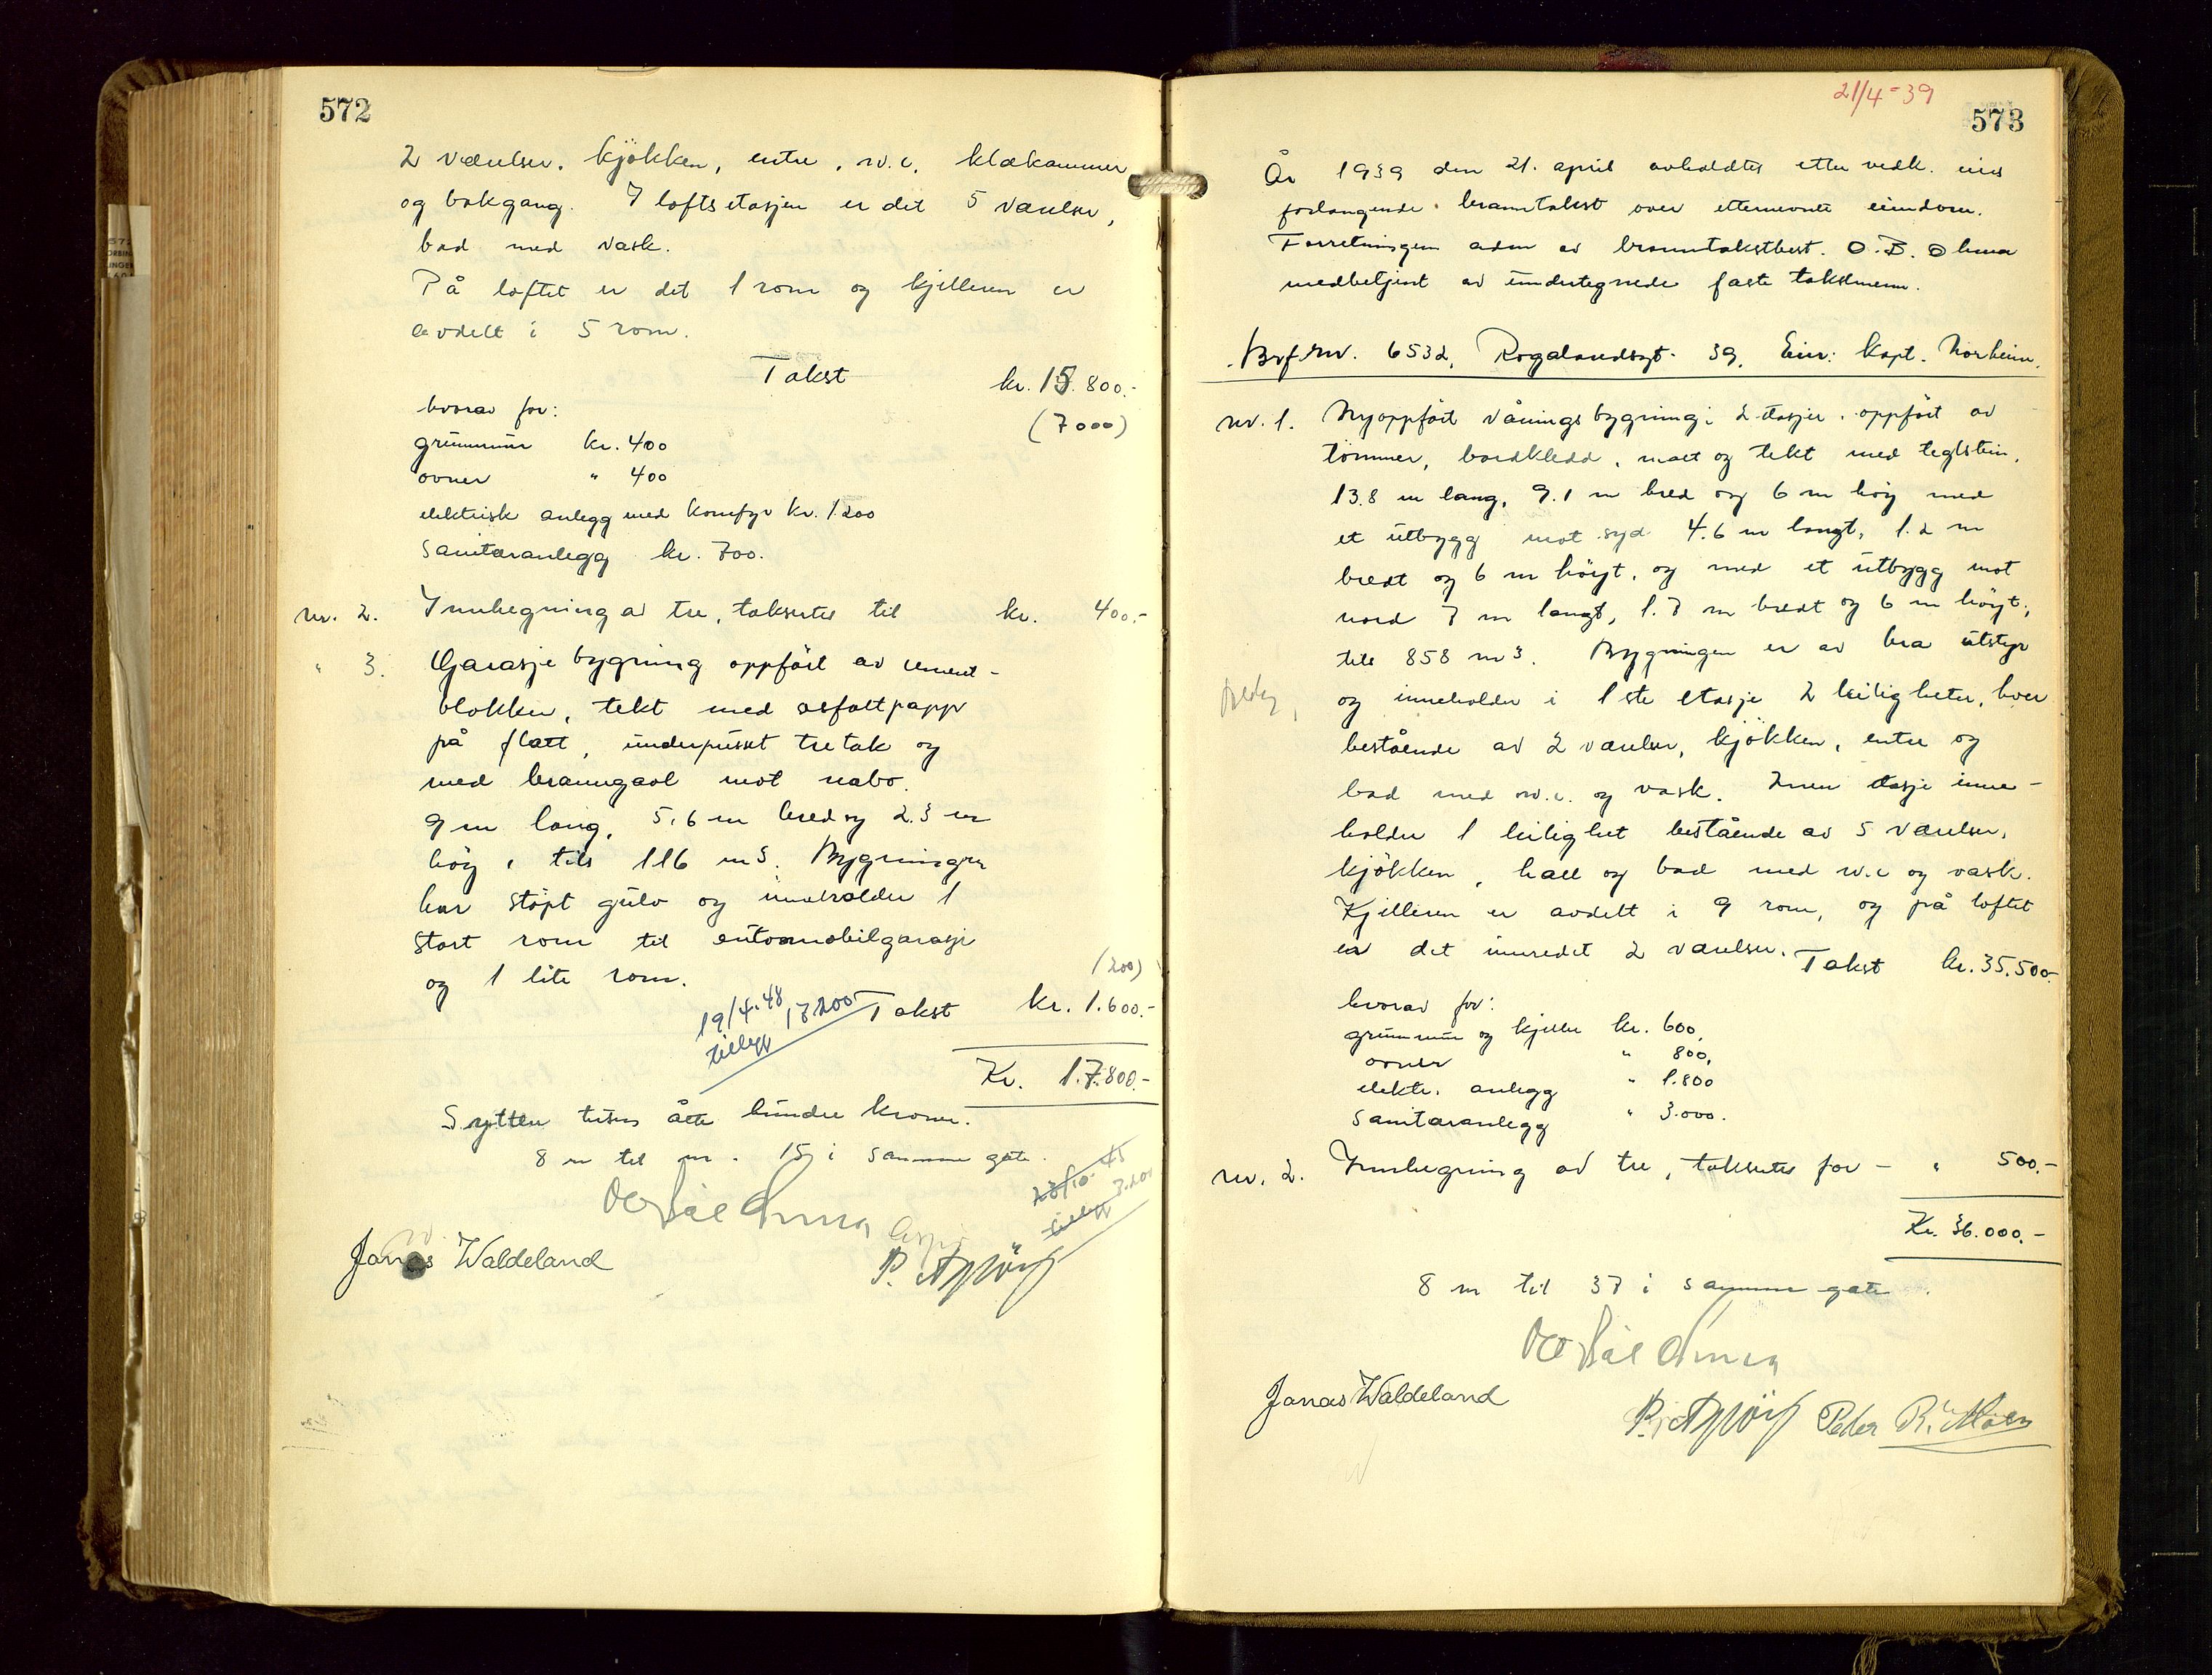 572
2 værelser, kjøkken, entre, w.c. klækammer
og bakgang. I loftsetasjen er det 5 værelser,
bad med vask.
På loftet er det 1 rom og kjelleren er
avdelt i 5 rom.
Takst kr. 15.800.-
hvorav for: (7000)
grunnmur kr. 400
ovner " 400
elektrisk anlegg med komfyr kr. 1200
Sanitæranlegg kr. 700.
nr. 2. Innhegning av tre, takseres til kr. 400.-
" 3. Garasjebygning oppført av cement-
blokker, tekt med asfaltpapp
på flatt, underpusset tretak og
med branngavl mot nabo.
9 m lang, 5,6 m bred og 2.3 m
høy, tils 116 m3. Bygningen
har støpt gulv og inneholder 1
stort rom til automobilgarasje
og 1 lite rom. (200)
19/4.48 17200 Takst kr. 1.600.-
tillegg
Kr. 17.800.-
Sytten tusen åtte hundre kroner.
8 m til nr. 15 i samme gate.
23/10 45
tillegg 3.200
Jonas Waldeland
21/4-39
573
År 1939 den 21. april avholdtes etter vedk. eiers
forlangende branntakst over etternevnte eiendom.
Forretningen adm av branntakstbest. O.B. Ohma
medbetjent av undertegnede faste takstmenn.
Brf.nr. 6532, Rogalandsgt. 39, Eier: Kapt. Norheim.
nr. 1. Nyoppført våningsbygning i 2 etasjer, oppført av
tømmer, bordkledd, malt og tekt med teglstein,
13.8 m lang, 9.1 m bred og 6 m høy med
et utbygg mot syd 4.6 m langt, 1.2 m
bredt og 6 m høyt, og med et utbygg mot
nord 7 m langt, 1.7 m bredt og 6 m høyt,
tils 858 m3. Bygningen er av bra utstyr
og inneholder i 1ste etasje 2 leiligheter, hver
bestående av 2 værelser, kjøkken, entre og
bad med w.c. og vask. 2nen etasje inne-
holder 1 leilighet bestående av 5 værelser,
kjøkken, hall og bad med w.c og vask.
Kjelleren er avdelt i 9 rom, og på loftet
er det innredet 2 værelser. Takst kr. 35.500.-
hvorav for:
grunnmur og kjeller kr. 600,
ovner " 800,
elektr. anlegg " 1.800
Sanitæranlegg " 3.000.
nr. 2. Innhegning av tre, takseres for - " 500.-
Kr. 36.000.-
8 m til 37 i samme gate.
Jonas Waldeland
Peder R. Moen